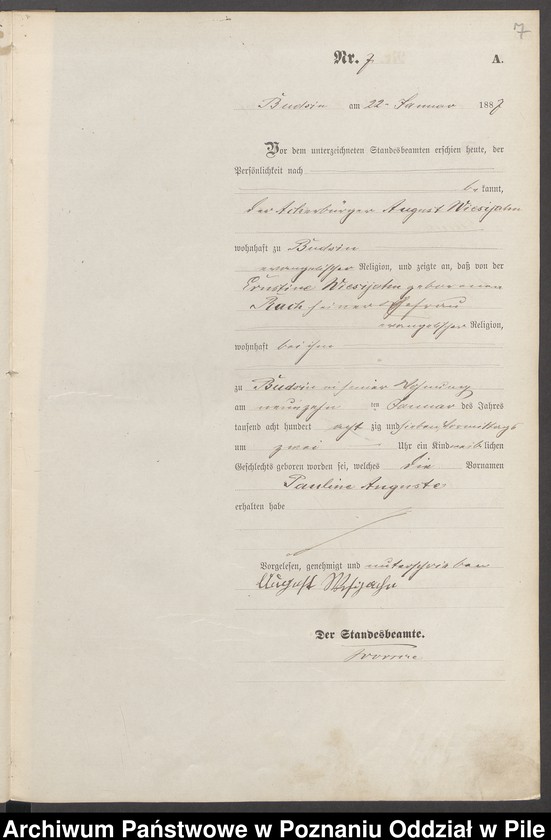 7
Nr. 7 A.
Budsin am 22. Januar 1887
Vor dem unterzeichneten Standesbeamten erschien heute, der
Persönlichkeit nach
be kannt,
der Ackerbürger August Wiesijahn
wohnhaft zu Budsin
evangelischer Religion, und zeigte an, daß von der
Ernstine Wiesijahn geborenen
Rach seiner Ehefrau
evangelischer Religion,
wohnhaft bei ihm
zu Budsin in seiner Wohnung
am neunzehn ten Januar des Jahres
tausend acht hundert acht zig und sieben, Vormittags
um zwei Uhr ein Kind weiblichen
Geschlechts geboren worden sei, welches die Vornamen
Pauline Auguste
erhalten habe
Vorgelesen, genehmigt und unterschrieben
August
Der Standesbeamte.
Archiwum Państwowe w Poznaniu Oddział w Pile